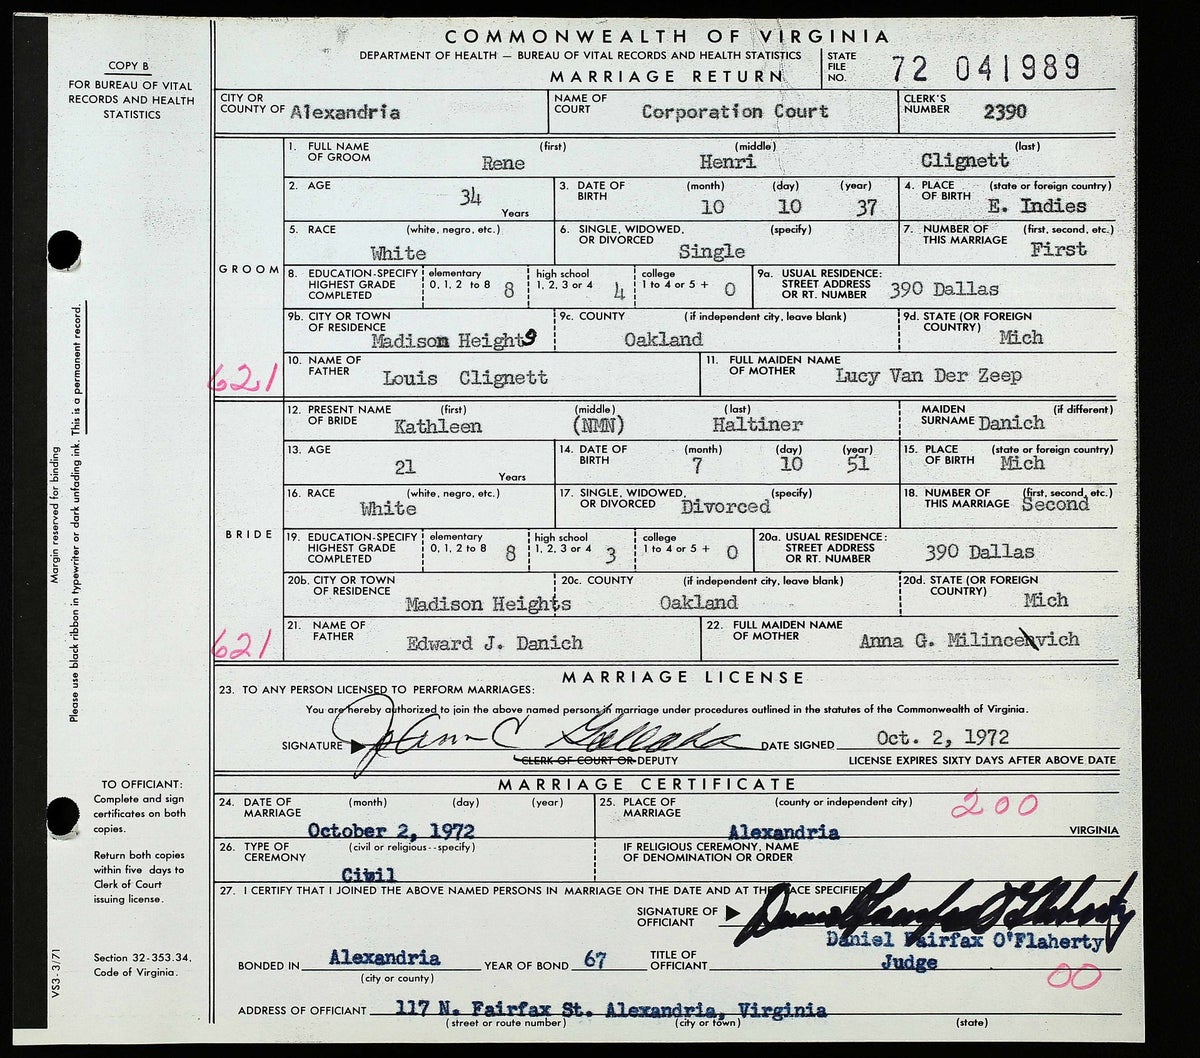 COMMONWEALTH OF VIRGINIA
DEPARTMENT OF HEALTH — BUREAU OF VITAL RECORDS AND HEALTH STATISTICS
MARRIAGE RETURN
STATE FILE NO. 72 041989
COPY B
FOR BUREAU OF VITAL
RECORDS AND HEALTH
STATISTICS
CITY OR COUNTY OF Alexandria NAME OF COURT Corporation Court CLERK'S NUMBER 2390
GROOM
1. FULL NAME OF GROOM (first) Rene (middle) Henri (last) Clignett
2. AGE 34 Years 3. DATE OF BIRTH (month) 10 (day) 10 (year) 37 4. PLACE OF BIRTH (state or foreign country) E. Indies
5. RACE (white, negro, etc.) White 6. SINGLE, WIDOWED, OR DIVORCED (specify) Single 7. NUMBER OF THIS MARRIAGE (first, second, etc.) First
8. EDUCATION-SPECIFY HIGHEST GRADE COMPLETED elementary 0, 1, 2 to 8 8 high school 1, 2, 3 or 4 4 college 1 to 4 or 5 + 0 9a. USUAL RESIDENCE: STREET ADDRESS OR RT. NUMBER 390 Dallas
9b. CITY OR TOWN OF RESIDENCE Madison Heights 9c. COUNTY (if independent city, leave blank) Oakland 9d. STATE (OR FOREIGN COUNTRY) Mich
621
10. NAME OF FATHER Louis Clignett 11. FULL MAIDEN NAME OF MOTHER Lucy Van Der Zeep
BRIDE
12. PRESENT NAME OF BRIDE (first) Kathleen (middle) (NMN) (last) Haltiner MAIDEN SURNAME (if different) Danich
13. AGE 21 Years 14. DATE OF BIRTH (month) 7 (day) 10 (year) 51 15. PLACE OF BIRTH (state or foreign country) Mich
16. RACE (white, negro, etc.) White 17. SINGLE, WIDOWED, OR DIVORCED (specify) Divorced 18. NUMBER OF THIS MARRIAGE (first, second, etc.) Second
19. EDUCATION-SPECIFY HIGHEST GRADE COMPLETED elementary 0, 1, 2 to 8 8 high school 1, 2, 3 or 4 3 college 1 to 4 or 5 + 0 20a. USUAL RESIDENCE: STREET ADDRESS OR RT. NUMBER 390 Dallas
20b. CITY OR TOWN OF RESIDENCE Madison Heights 20c. COUNTY (if independent city, leave blank) Oakland 20d. STATE (OR FOREIGN COUNTRY) Mich
621
21. NAME OF FATHER Edward J. Danich 22. FULL MAIDEN NAME OF MOTHER Anna G. Milincevich
MARRIAGE LICENSE
23. TO ANY PERSON LICENSED TO PERFORM MARRIAGES:
You are hereby authorized to join the above named persons in marriage under procedures outlined in the statutes of the Commonwealth of Virginia.
SIGNATURE JoAnn C DATE SIGNED Oct. 2, 1972
CLERK OF COURT OR DEPUTY LICENSE EXPIRES SIXTY DAYS AFTER ABOVE DATE
MARRIAGE CERTIFICATE
24. DATE OF MARRIAGE (month) (day) (year) October 2, 1972 25. PLACE OF MARRIAGE (county or independent city) Alexandria VIRGINIA
200
26. TYPE OF CEREMONY (civil or religious--specify) Civil IF RELIGIOUS CEREMONY, NAME OF DENOMINATION OR ORDER
27. I CERTIFY THAT I JOINED THE ABOVE NAMED PERSONS IN MARRIAGE ON THE DATE AND AT THE PLACE SPECIFIED
SIGNATURE OF OFFICIANT Daniel Fairfax O'Flaherty
Daniel Fairfax O'Flaherty
BONDED IN Alexandria (city or county) YEAR OF BOND 67 TITLE OF OFFICIANT Judge
00
ADDRESS OF OFFICIANT 117 N. Fairfax St. Alexandria, Virginia
(street or route number) (city or town) (state)
Margin reserved for binding
Please use black ribbon in typewriter or dark unfading ink. This is a permanent record.
TO OFFICIANT:
Complete and sign
certificates on both
copies.
Return both copies
within five days to
Clerk of Court
issuing license.
Section 32-353.34,
Code of Virginia.
VS3-3/71